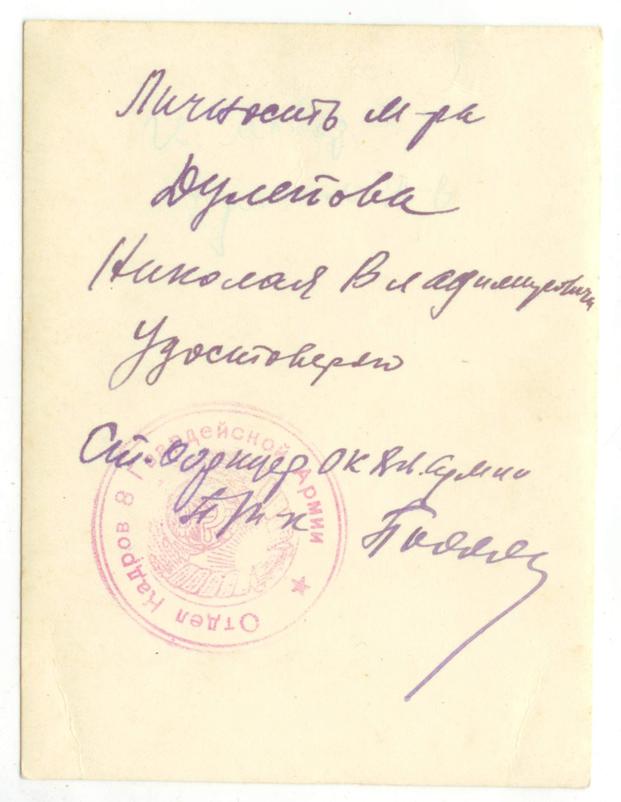 Личность м-ра
Дулепова
Николая Владимировича
Удостоверяю
Ст. офицер ОК 8 гв. Армии
п/п-к
Отдел Кадров 8 Гвардейской Армии